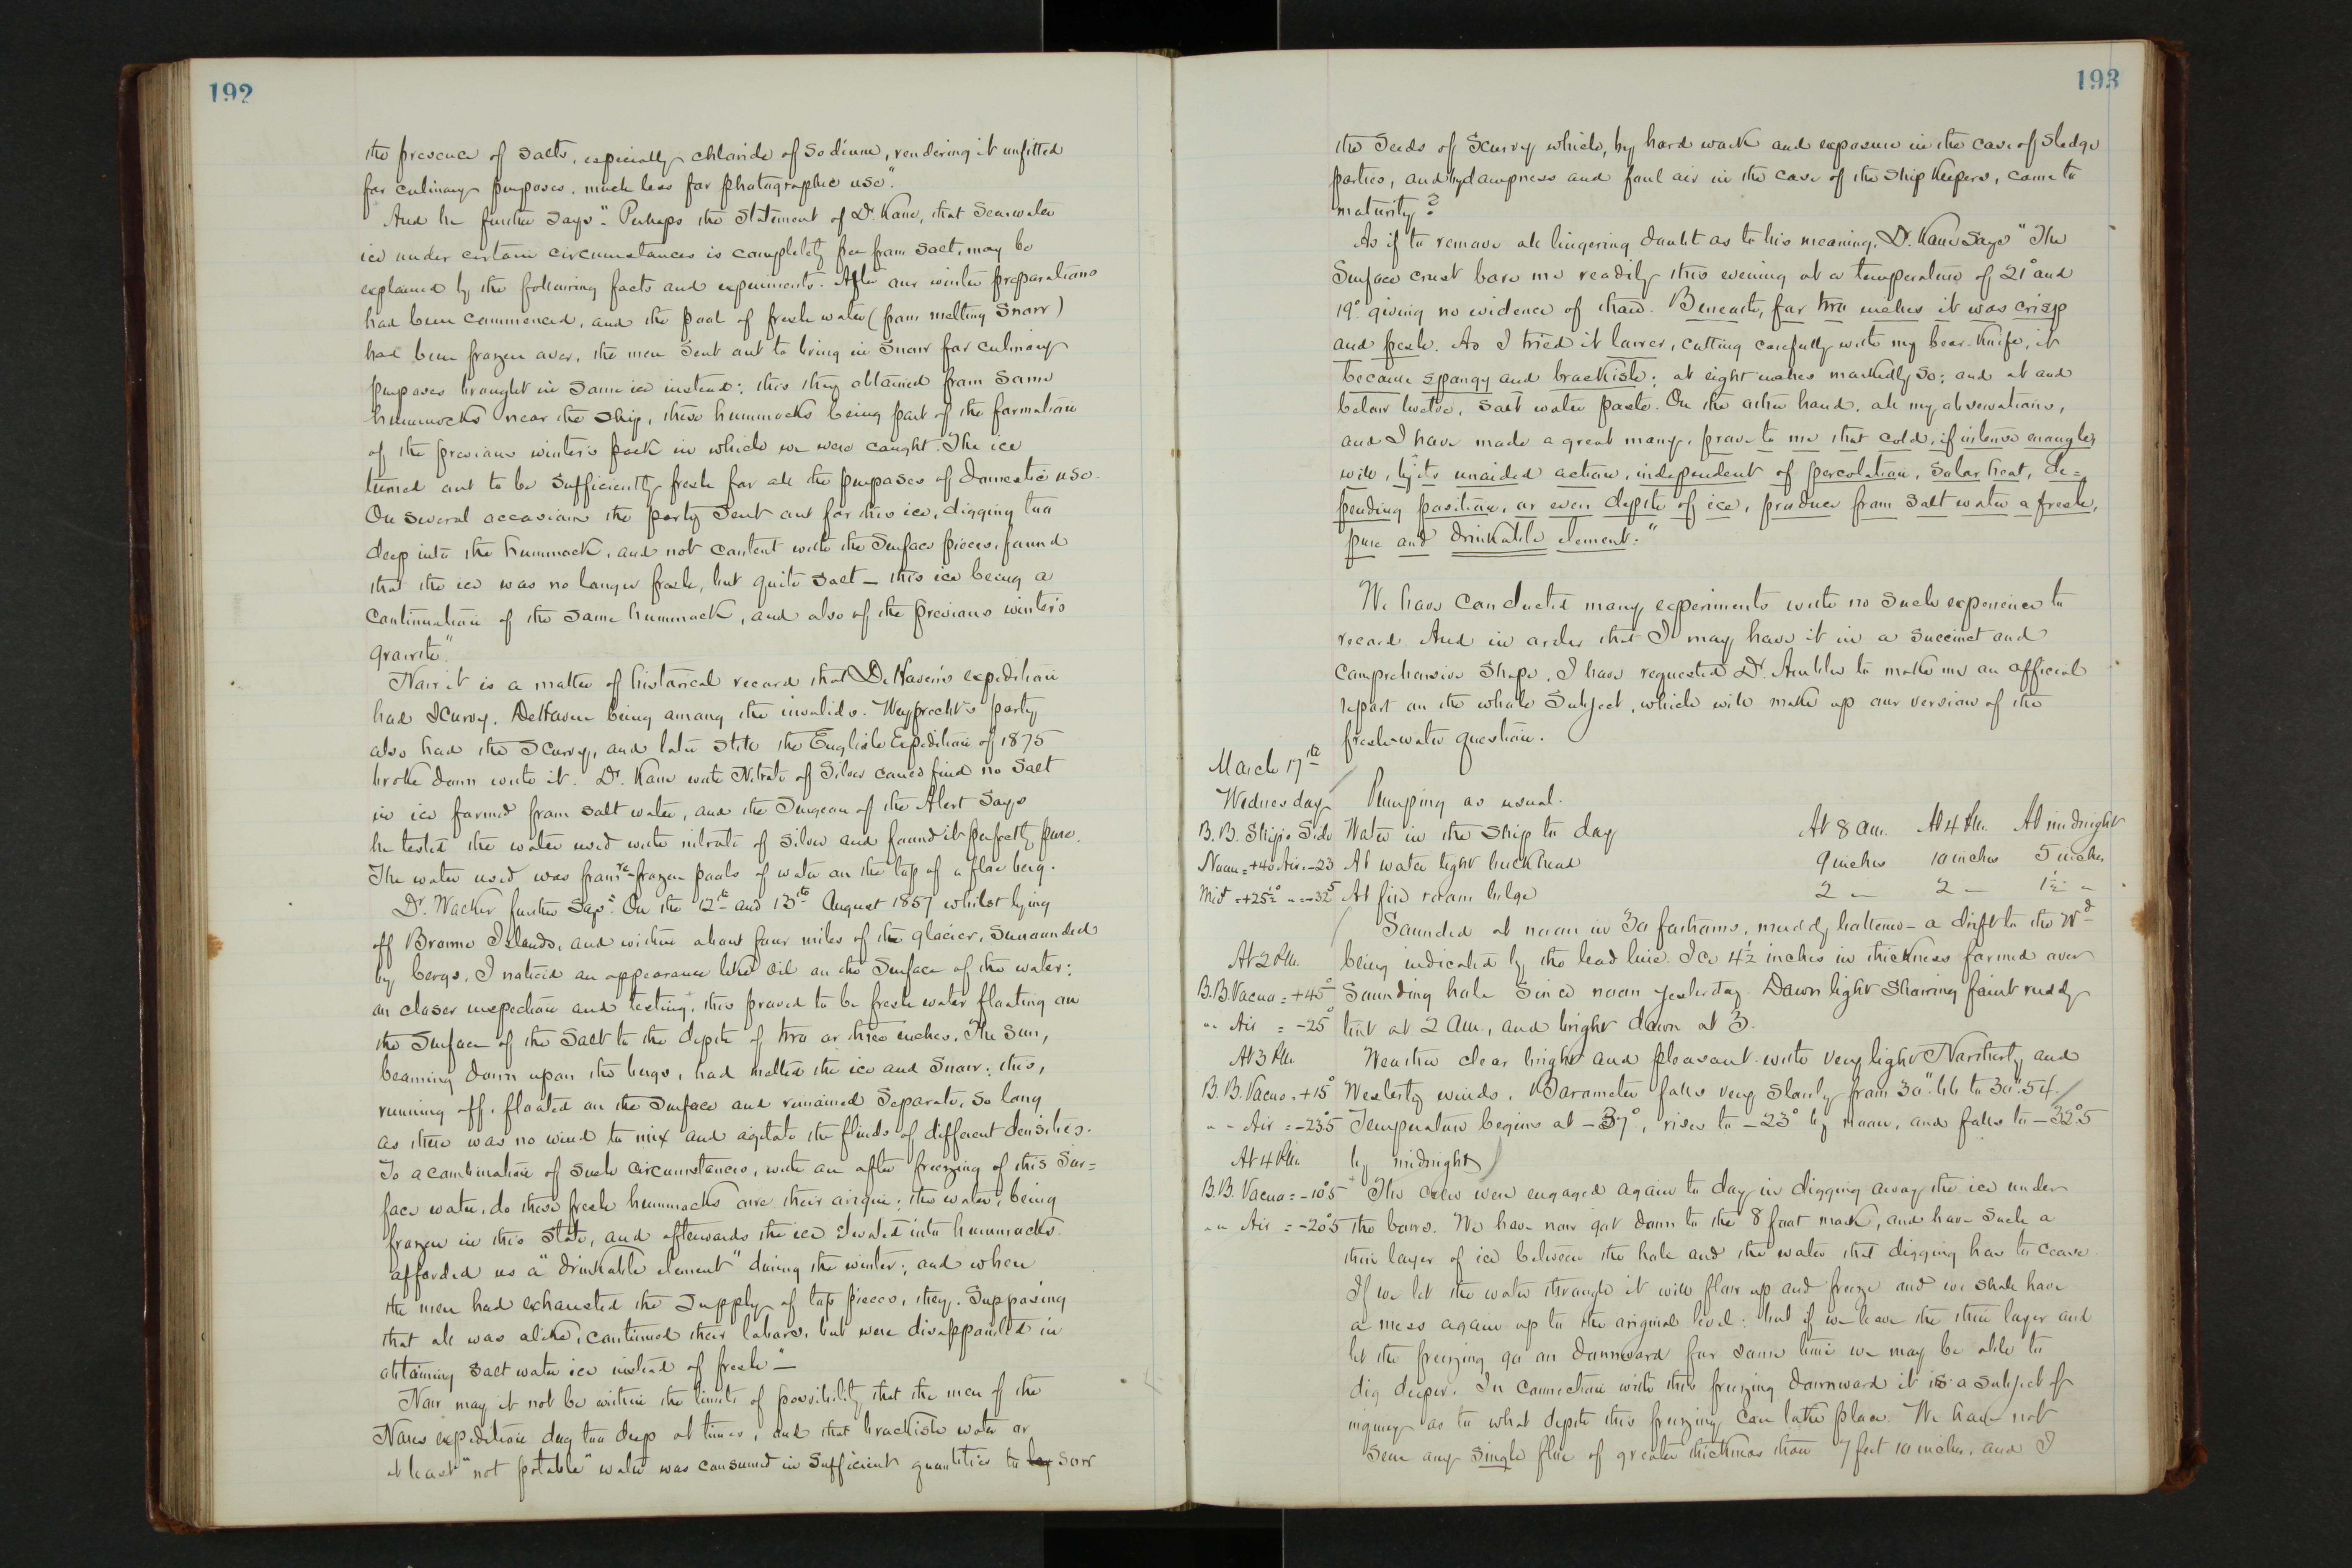 192
the presence of salts, especially chloride of Sodium, rendering it unfitted
for culinary purposes, much less for photographic use".
And he further says": Perhaps the statement of Dr. Kane, that Sea-water
ice under certain circumstances is completely free from salt, may be
explained by the following facts and experiments. After our winter preparations
had been commenced, and the pool of fresh water (from melting Snow)
had been frozen over, the men sent out to bring in snow for culinary
purposes brought in some ice instead: this they obtained from some
hummocks near the ship, these hummocks being part of the formation
of the previous winter's pack in which we were caught. The ice
turned out to be sufficiently fresh for all the purposes of domestic use.
On several occasions the party sent out for this ice, digging too
deep into the hummock, and not content with the surface pieces, found
that the ice was no longer fresh, but quite salt – this ice being a
continuation of the same hummock, and also of the previous winter's
growth".
Now it is a matter of historical record that DeHaven's expedition
had scurvy, DeHaven being among the invalids. Weyprecht's party
also had the scurvy, and later still the English Expedition of 1875
broke down with it. Dr. Kane with Nitrate of Silver could find no salt
in ice formed from salt water, and the Surgeon of the Alert says
he tested the water used with nitrate of silver and found it perfectly pure.
The water used was from re-frozen pools of water on the top of a floe berg.
Dr. Walker further says": On the 12th and 13th August 1857 whilst lying
off Browne Islands, and within about four miles of the glacier, surrounded
by bergs, I noticed an appearance like oil on the surface of the water:
on closer inspection and testing, this proved to be fresh water floating on
the surface of the salt to the depth of two or three inches. The sun,
beaming down upon the bergs, had melted the ice and snow: this,
running off, floated on the surface and remained separate, so long
as there was no wind to mix and agitate the fluids of different densities.
To a combination of such circumstances, with an after freezing of this sur=
face water, do these fresh hummocks owe their origin: the water, being
frozen in this state, and afterwards the ice elevated into hummocks
afforded us a "drinkable element" during the winter; and when
the men had exhausted the supply of top pieces, they, supposing
that all was alike, continued their labors, but were disappointed in
obtaining salt water ice instead of fresh"–
Now may it not be within the limits of possibility that the men of the
Nares expedition dug too deep at times, and that brackish water or
at least "not potable" water was consumed in sufficient quantities to lay sow
193
the seeds of scurvy which, by hard work and exposure in the case of sledge
parties, and by dampness and foul air in the case of the ship keepers, came to
maturity?
As if to remove all lingering doubt as to his meaning, Dr. Kane says "The
surface crust bore me readily this evening at a temperature of 21° and
19° giving no evidence of thaw. Beneath, for two inches it was crisp
and fresh. As I tried it lower, cutting carefully with my bear-knife, it
became spongy and brackish; at eight inches markedly so; and at and
below twelve, salt water paste. On the other hand, all my observations,
and I have made a great many, prove to me that cold, if intense enough,
will, by its unaided action, independent of percolation, solar heat, de=
pending position, or even depth of ice, produce from salt water a fresh,
pure and drinkable element."
We have conducted many experiments with no such experience to
record. And in order that I may have it in a succinct and
comprehensive shape, I have requested Dr. Ambler to make me an official
report on the whole subject, which will make up our version of the
fresh-water question.
March 17th
Wednesday Pumping as usual.
B.B. Ship's Side Water in the ship to day At 8 am. At 4 Pm. At midnight
Noon = +40 Air = -23 At water tight bulkhead 9 inches 10 inches 5 inches
Mid = +25½° " = -32°5 At fire room bilge 2 " 2 " 1½ "
Sounded at noon in 30 fathoms, muddy bottom – a drift to the Wd
At 2 Pm. being indicated by the lead line. Ice 4½ inches in thickness formed over
B.B. Vacuo = +45° sounding hole since noon yesterday. Dawn light showing faint ruddy
" " Air = -25° tint at 2 am., and bright dawn at 3.
At 3 Pm. Weather clear bright and pleasant with very light Northerly and
B.B. Vacuo = +15° Westerly winds. Barometer falls very slowly from 30".66 to 30".54.
" " Air = -23°5 Temperature begins at -37°, rises to -23° by noon, and falls to -32°5
At 4 Pm. by midnight
B.B. Vacuo = -10°5 The crew were engaged again to day in digging away the ice under
" " Air = -20°5 the bows. We have now got down to the 8 foot mark, and have such a
thin layer of ice between the hole and the water that digging has to cease.
If we let the water through it will flow up and freeze and we shall have
a mess again up to the original level: but if we leave the thin layer and
let the freezing go on downward for some time we may be able to
dig deeper. In connection with this freezing downward it is a subject of
inquiry as to what depth this freezing can take place. We have not
seen any single floe of greater thickness than 7 feet 10 inches, and I